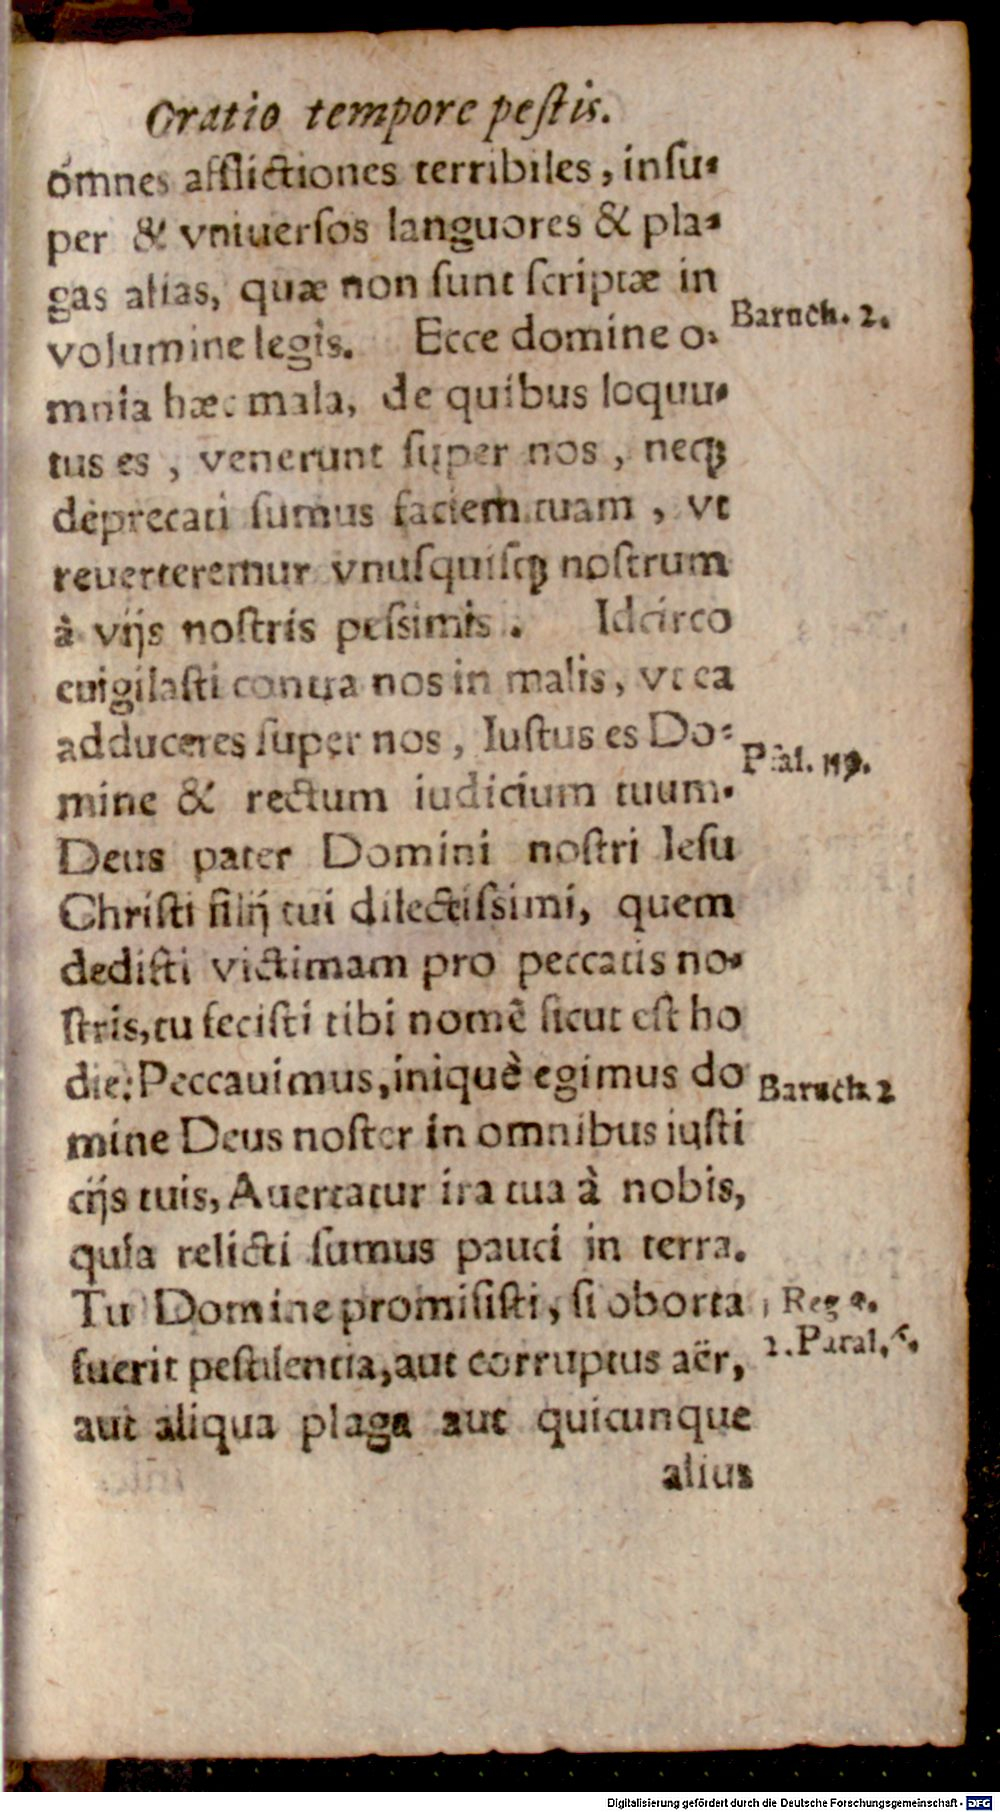 Oratio tempore peſtis.
omnes afflictiones terribiles, inſu-
per & vniuerſos languores & pla-
gas alias, quæ non ſunt ſcriptæ in
volumine legis. Ecce domine o-
Baruch. 2.
mnia hæc mala, de quibus loquu-
tus es, venerunt ſuper nos, neqꝫ
deprecati ſumus faciem tuam, vt
reuerteremur vnuſquiſqꝫ noſtrum
à vijs noſtris peſsimis. Idcirco
euigilaſti contra nos in malis, vt ea
adduceres ſuper nos, Iuſtus es Do-
Pſal. 119.
mine & rectum iudicium tuum.
Deus pater Domini noſtri Ieſu
Chriſti filij tui dilectiſsimi, quem
dediſti victimam pro peccatis no-
ſtris, tu feciſti tibi nomẽ ſicut eſt ho
die: Peccauimus, iniquè egimus do
Baruch 2
mine Deus noſter in omnibus iuſti
cijs tuis, Auertatur ira tua à nobis,
quia relicti ſumus pauci in terra.
Tu Domine promiſiſti, ſi oborta
Reg
fuerit peſtilentia, aut corruptus aër,
2. Paral. 6.
aut aliqua plaga aut quicunque
alius
Digitalisierung gefördert durch die Deutsche Forschungsgemeinschaft - DFG